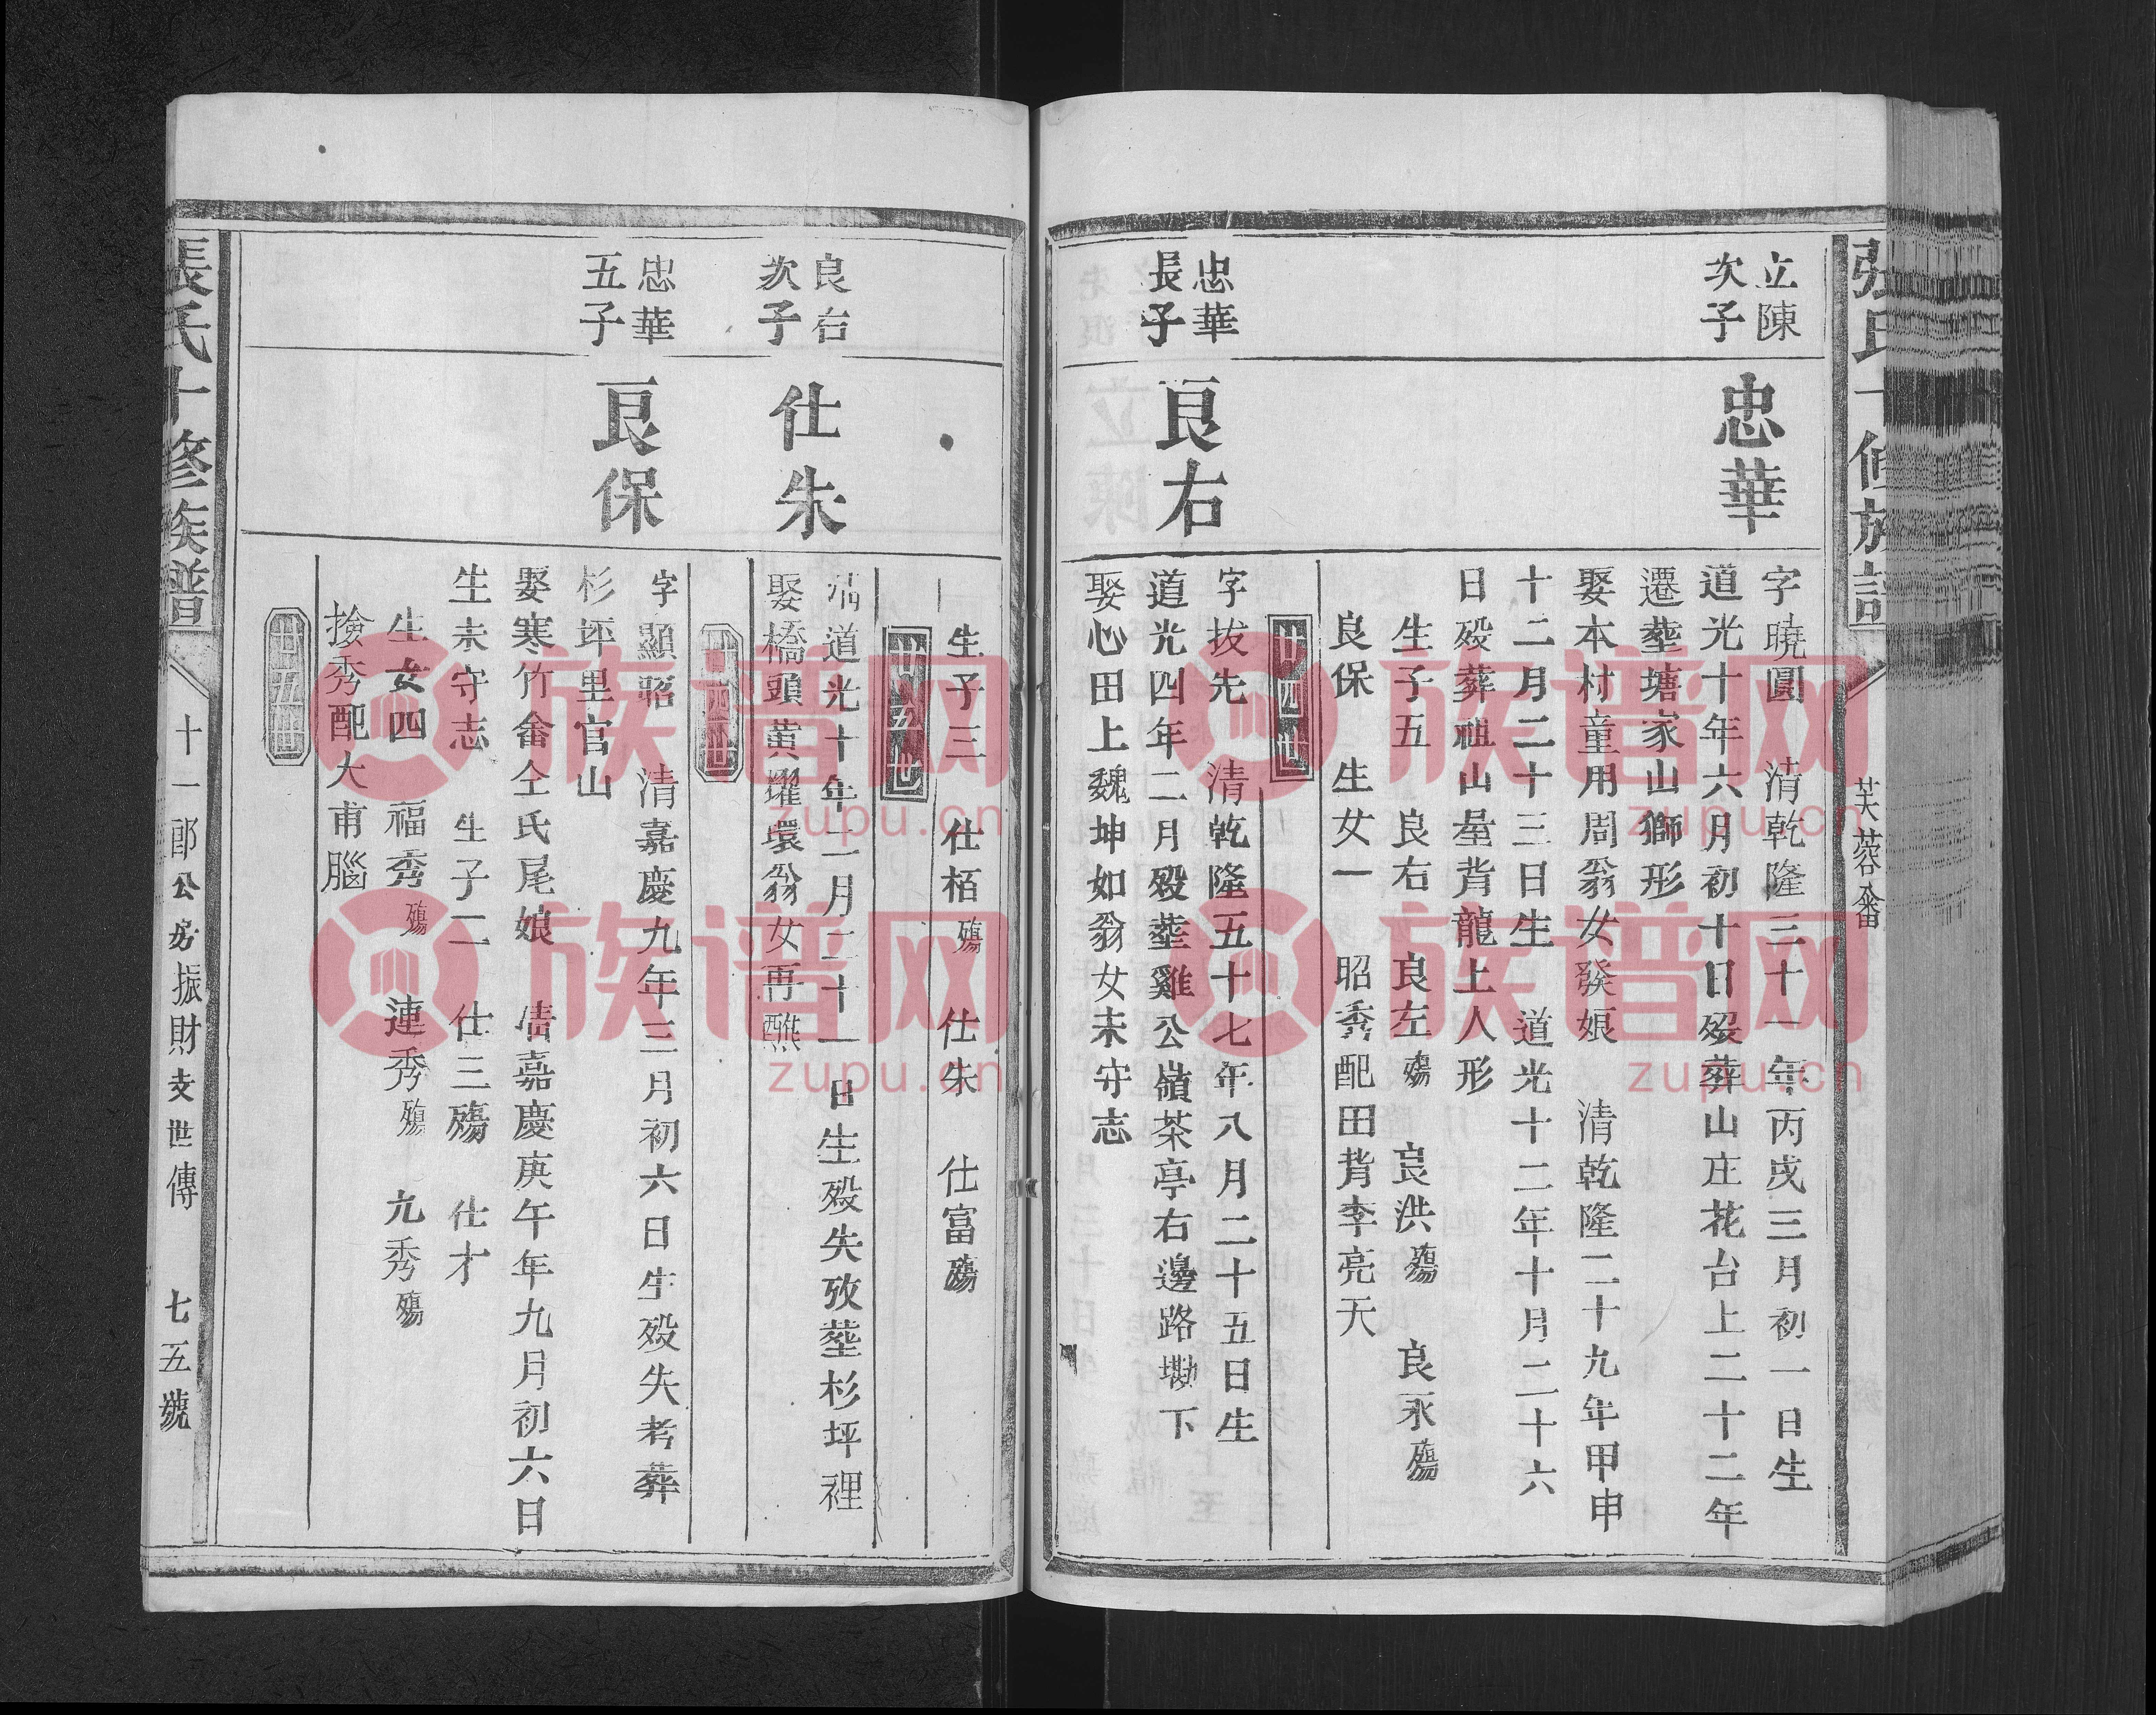 張氏十修族譜
芙蓉畲
立陳
次子
忠華
字曉圓　清乾隆三十一年丙戌三月初一日生
道光十年六月初十日殁葬山庄花台上二十二年
遷塟塘家山獅形
娶本村童用周翁女發娘　清乾隆二十九年甲申
十二月二十三日生　道光十二年十月二十六
日殁葬祖山星背龍上人形
生子五　良右　良左殤　良洪殤　良永殤
良保　生女一　昭秀配田背李亮天
廿四世
忠華
長子
良右
字拔先　清乾隆五十七年八月二十五日生
道光四年二月殁塟雞公嶺茶亭右邊路墈下
娶心田上魏坤如翁女未守志
生子三　仕栢殤　仕朱　仕富殤
廿五世
良右
次子
仕朱
清道光十年二月二十一日生殁失攷塟杉坪裡
娶橋頭黃耀環翁女再醮
廿四世
忠華
五子
良保
字顯昭　清嘉慶九年三月初六日生殁失考葬
杉坪里官山
娶寒竹畬仝氏尾娘　清嘉慶庚午年九月初六日
生未守志　生子二　仕三殤　仕才
生女四　福秀殤　連秀殤　九秀殤
撿秀配大甫腦
廿五世
張氏十修族譜
十一郎公房振財支世傳　七五號
族谱网
zupu.cn
族谱网
zupu.cn
族谱网
zupu.cn
族谱网
zupu.cn